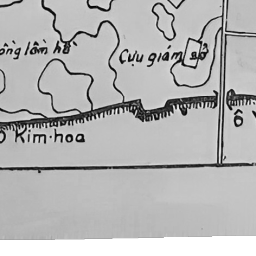 ồng lâm hồ
Cựu giám sở
ô Kim-hoa
ô